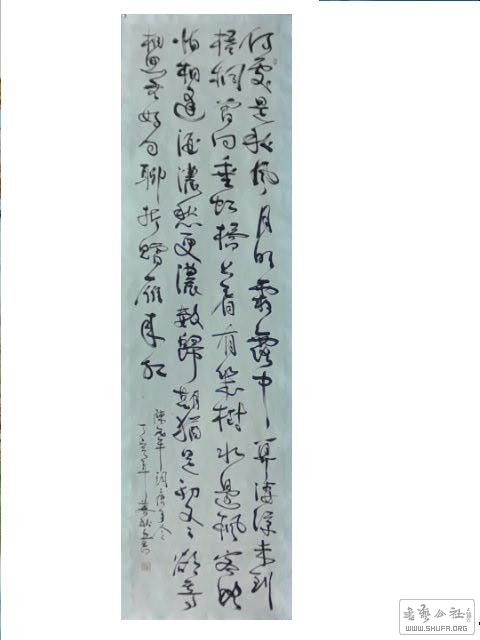 何處是秋風月明霜露中算淒涼未到
梧桐曾向垂虹橋上看有幾樹水邊楓客路
怕相逢酒濃愁更濃數歸期猶是初冬欲寄
相思無好句聊折贈雁來紅
陳允平詞唐多令
丁亥年
书艺公社
WWW.SHUFA.ORG